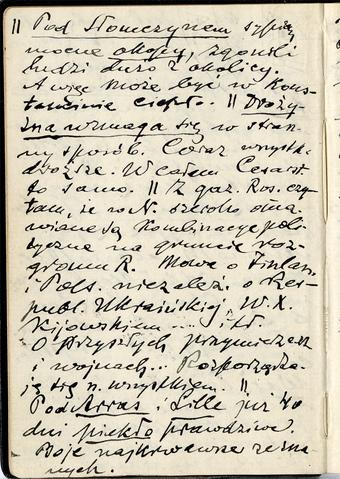 || Pod Słomczynem sypią
mocne okopy, zgonili
ludzi dużo z okolicy.
A więc może być w Kons-
tancinie ciepło. || Droży-
zna wzmaga się w stras-
ny sposób. Coraz wszystk.
droższe. W całem Cesarst.
to samo. || Z gaz. Ros. czy-
tam, że w N. szeroko oma-
wiane są kombinacye poli-
tyczne na gruncie roz-
gromu R. Mowa o Finlan.
i Pols. niezależ. o Res-
publ. Ukraińskiej, W. X.
Kijowskiem ... i t.d.
O przyszłych przymierzach
i wojnach... Rozporządza-
ją się n. wszystkiem. ||
Pod Arras i Lille już 40
dni piekło prawdziwe.
Boje najkrwawsze ze zna-
nych.